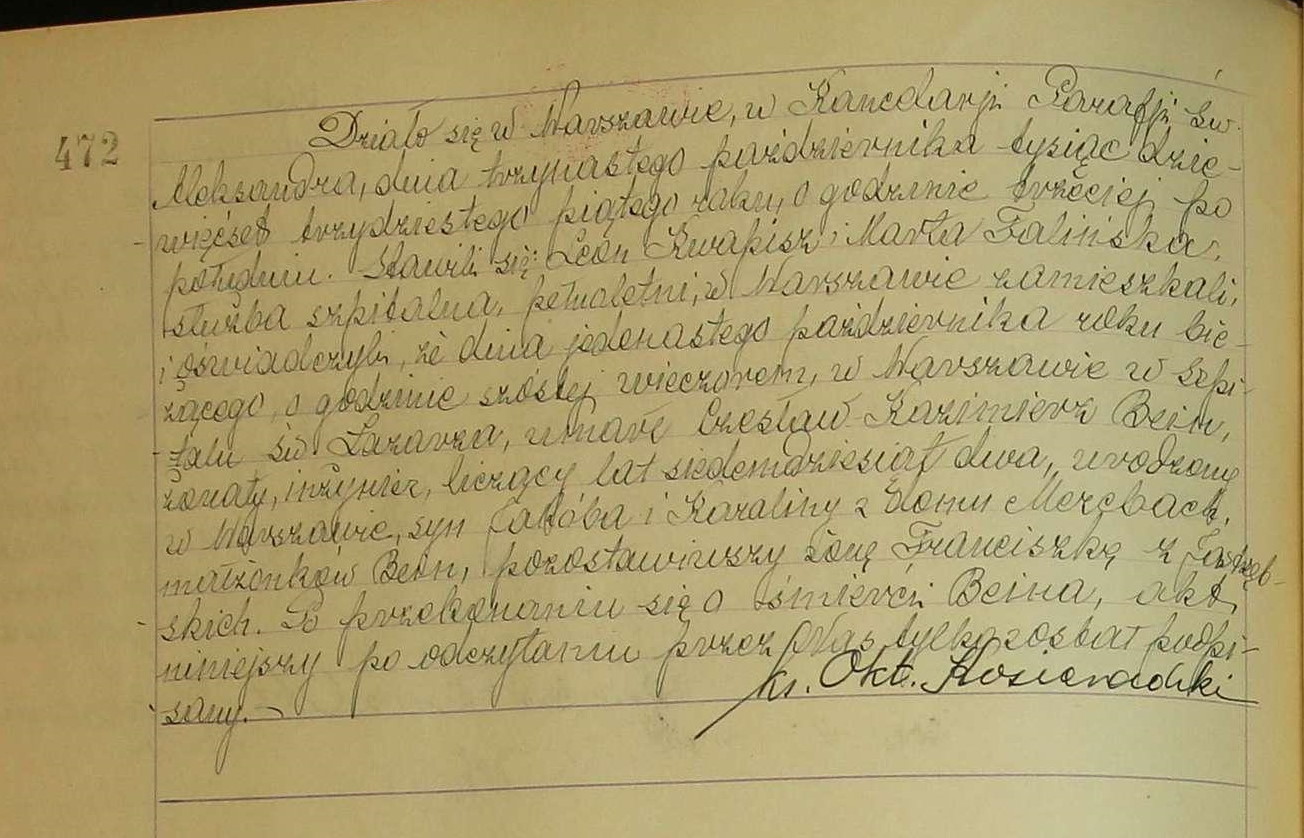 472
Działo się w Warszawie, w Kancelarji Parafji św.
Aleksandra, dnia trzynastego października tysiąc dzie-
więćset trzydziestego piątego roku, o godzinie trzeciej po
południu. Stawili się: Leon Kwapisz i Marta Falińska,
służba szpitalna, pełnoletni, w Warszawie zamieszkali,
i oświadczyli, że dnia jedenastego października roku bie-
żącego, o godzinie szóstej wieczorem, w Warszawie w Szpi-
talu św Łazarza, umarł Czesław Kazimierz Bein,
żonaty, inżynier, liczący lat siedemdziesiąt dwa, urodzony
w Warszawie, syn Jakóba i Karoliny z domu Mercbach,
małżonków Bein, pozostawiwszy żonę Franciszkę z Jastrzęb-
skich. Po przekonaniu się o śmierci Beina, akt
niniejszy po odczytaniu przez Nas tylko został podpi-
sany.
ks. Okt. Kosieradzki